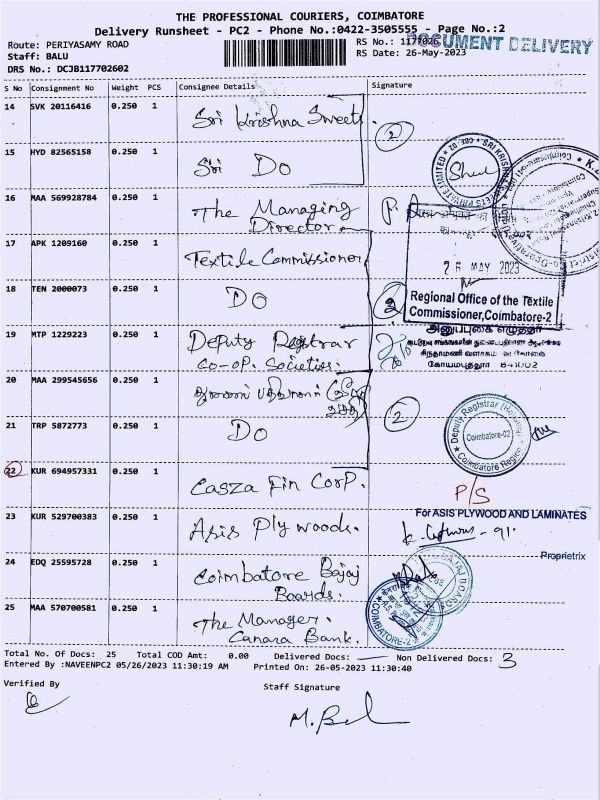 THE PROFESSIONAL COURIERS, COIMBATORE
Delivery Runsheet - PC2 - Phone No.:0422-3505555 - Page No.:2
Route: PERIYASAMY ROAD
RS No.: 1177026
DOCUMENT DELIVERY
Staff: BALU
RS Date: 26-May-2023
DRS No.: DCJB117702602
S No Consignment No Weight PCS Consignee Details Signature
14 SVK 20116416 0.250 1 Sri Krishna Sweets
2
15 HYD 82565158 0.250 1 Sri Do
16 MAA 569928784 0.250 1 The Managing
Director
17 APK 1209160 0.250 1 Textile Commissioner
26 MAY 2023
18 TEN 2000073 0.250 1 Do
2
Regional Office of the Textile
Commissioner, Coimbatore-2
19 MTP 1229223 0.250 1 Deputy Registrar
co-op. Societies.
கோயமுத்தூர் 641002
20 MAA 299545656 0.250 1
2
21 TRP 5872773 0.250 1 Do
Coimbatore-02
22 KUR 694957331 0.250 1 Casza Fin Corp.
P/S
23 KUR 529700383 0.250 1 Asis Ply woods.
For ASIS PLYWOOD AND LAMINATES
Proprietrix
24 EDQ 25595728 0.250 1 Coimbatore Bajaj
Boards.
25 MAA 570700581 0.250 1 The Manager.
Canara Bank.
COIMBATORE-2
Total No. Of Docs: 25 Total COD Amt: 0.00 Delivered Docs: Non Delivered Docs: 3
Entered By :NAVEENPC2 05/26/2023 11:30:19 AM Printed On: 26-05-2023 11:30:40
Verified By
Staff Signature